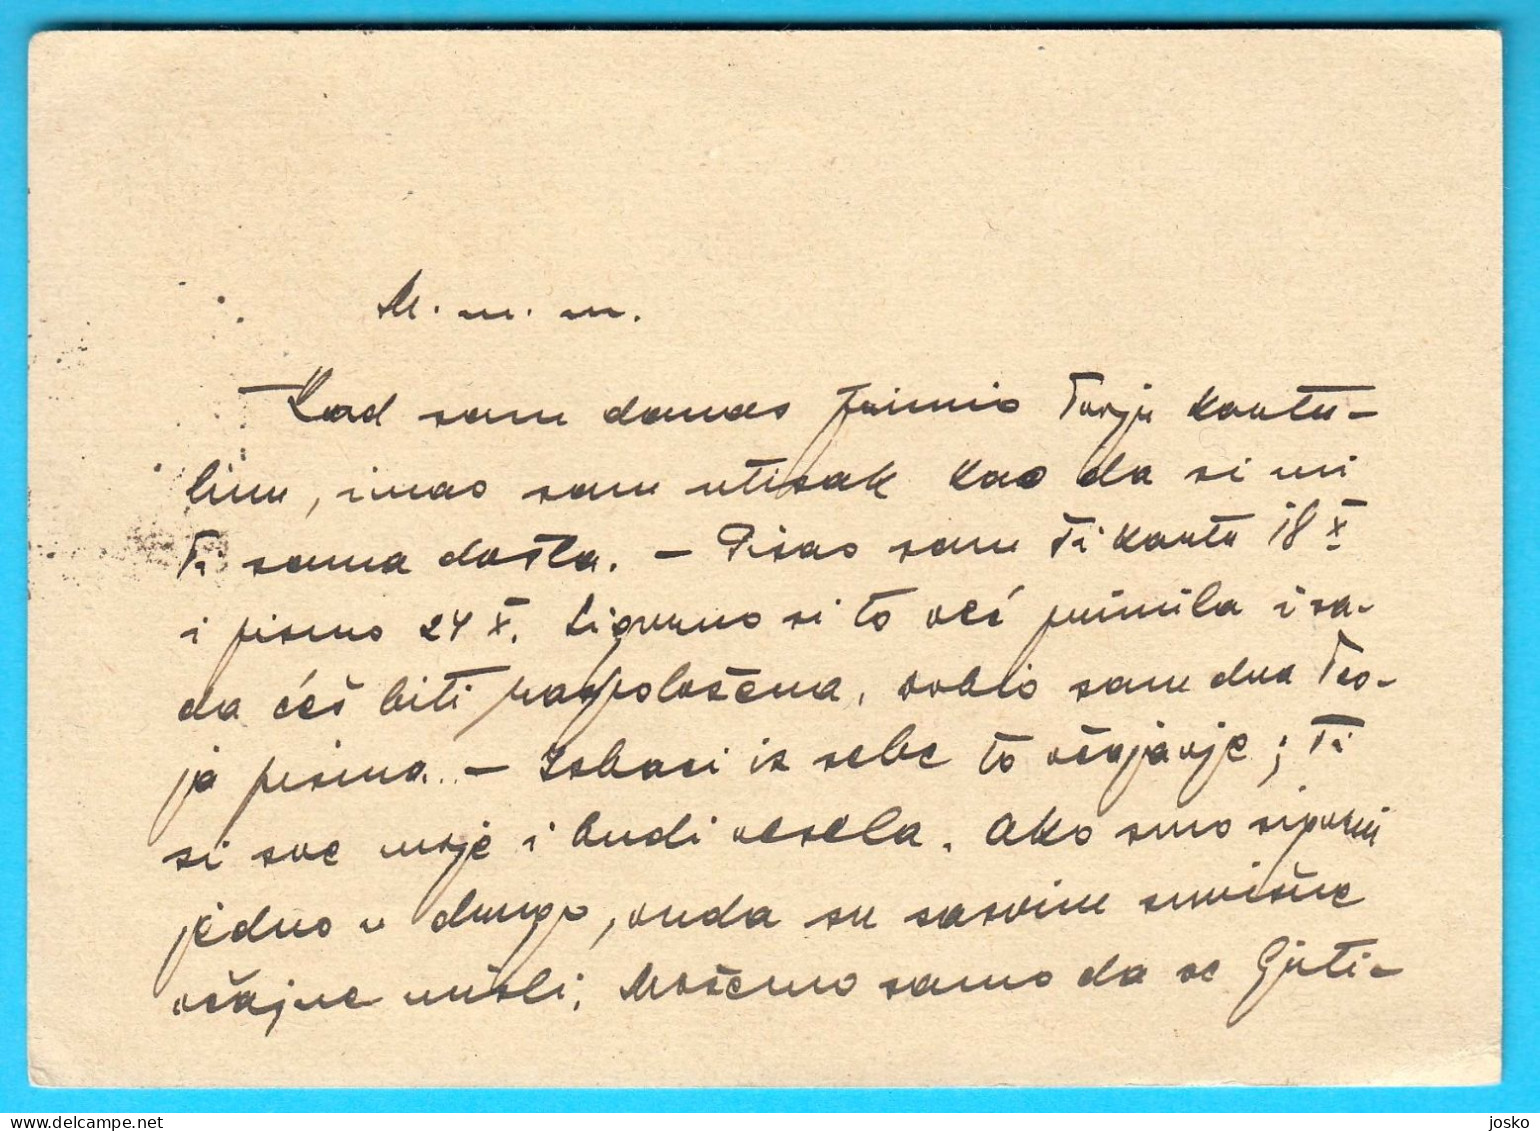 M. m. m.
Kad sam danas primio Tvoju kartu-
linu, imao sam utisak kao da si mi
Ti sama došla. – Pisao sam Ti kartu 18 X
i pismo 24 X. Sigurno si to već primila i sa-
da ćeš biti raspoložena, dobio sam dva Tvo-
ja pisma. – Izbaci iz sebe to očajanje; Ti
si sve moje i budi vesela. Ako smo sigurni
jedno u drugo, onda su sasvim suvišne
očajne misli. Možemo samo da se
josko
www.delcampe.net